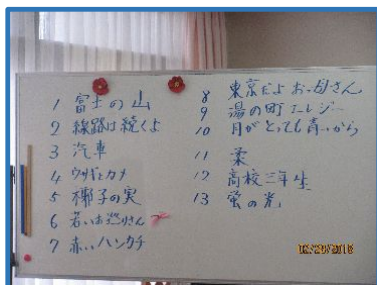 1 富士の山
2 線路は続くよ
3 汽車
4 ウサギとカメ
5 椰子の実
6 若いお巡りさん
7 赤いハンカチ
8 東京だよおっ母さん
9 湯の町エレジー
10 月がとっても青いから
11 柔
12 高校三年生
13 蛍の光
02/29/2016